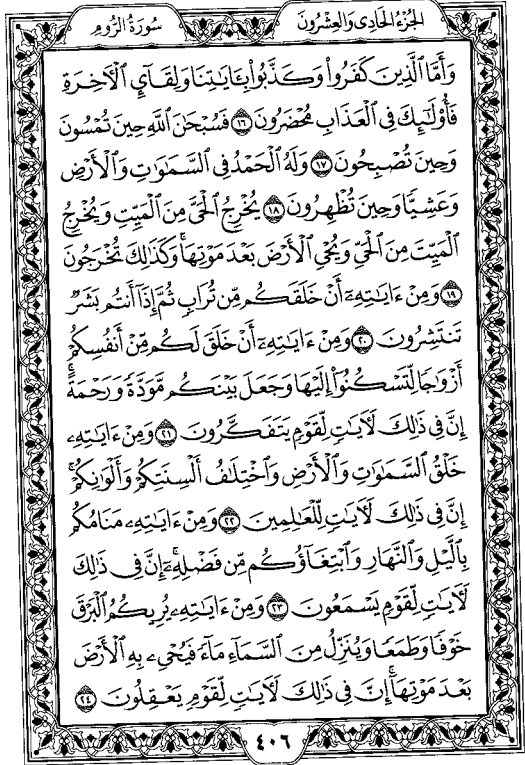 الجزء الحادي والعشرون
سورة الروم
وَأَمَّا ٱلَّذِينَ كَفَرُواْ وَكَذَّبُواْ بِـَٔايَٰتِنَا وَلِقَآيِٕ ٱلْأٓخِرَةِ
فَأُوْلَٰٓئِكَ فِى ٱلْعَذَابِ مُحْضَرُونَ ١٦ فَسُبْحَٰنَ ٱللَّهِ حِينَ تُمْسُونَ
وَحِينَ تُصْبِحُونَ ١٧ وَلَهُ ٱلْحَمْدُ فِى ٱلسَّمَٰوَٰتِ وَٱلْأَرْضِ
وَعَشِيًّا وَحِينَ تُظْهِرُونَ ١٨ يُخْرِجُ ٱلْحَىَّ مِنَ ٱلْمَيِّتِ وَيُخْرِجُ
ٱلْمَيِّتَ مِنَ ٱلْحَىِّ وَيُحْىِ ٱلْأَرْضَ بَعْدَ مَوْتِهَا ۚ وَكَذَٰلِكَ تُخْرَجُونَ
١٩ وَمِنْ ءَايَٰتِهِۦٓ أَنْ خَلَقَكُم مِّن تُرَابٍ ثُمَّ إِذَآ أَنتُم بَشَرٌ
تَنتَشِرُونَ ٢٠ وَمِنْ ءَايَٰتِهِۦٓ أَنْ خَلَقَ لَكُم مِّنْ أَنفُسِكُمْ
أَزْوَٰجًا لِّتَسْكُنُوٓاْ إِلَيْهَا وَجَعَلَ بَيْنَكُم مَّوَدَّةً وَرَحْمَةً ۚ
إِنَّ فِى ذَٰلِكَ لَأٓيَٰتٍ لِّقَوْمٍ يَتَفَكَّرُونَ ٢١ وَمِنْ ءَايَٰتِهِۦ
خَلْقُ ٱلسَّمَٰوَٰتِ وَٱلْأَرْضِ وَٱخْتِلَٰفُ أَلْسِنَتِكُمْ وَأَلْوَٰنِكُمْ ۚ
إِنَّ فِى ذَٰلِكَ لَأٓيَٰتٍ لِّلْعَٰلِمِينَ ٢٢ وَمِنْ ءَايَٰتِهِۦ مَنَامُكُم
بِٱلَّيْلِ وَٱلنَّهَارِ وَٱبْتِغَآؤُكُم مِّن فَضْلِهِۦٓ ۚ إِنَّ فِى ذَٰلِكَ
لَأٓيَٰتٍ لِّقَوْمٍ يَسْمَعُونَ ٢٣ وَمِنْ ءَايَٰتِهِۦ يُرِيكُمُ ٱلْبَرْقَ
خَوْفًا وَطَمَعًا وَيُنَزِّلُ مِنَ ٱلسَّمَآءِ مَآءً فَيُحْىِۦ بِهِ ٱلْأَرْضَ
بَعْدَ مَوْتِهَآ ۚ إِنَّ فِى ذَٰلِكَ لَأٓيَٰتٍ لِّقَوْمٍ يَعْقِلُونَ ٢٤
٤٠٦